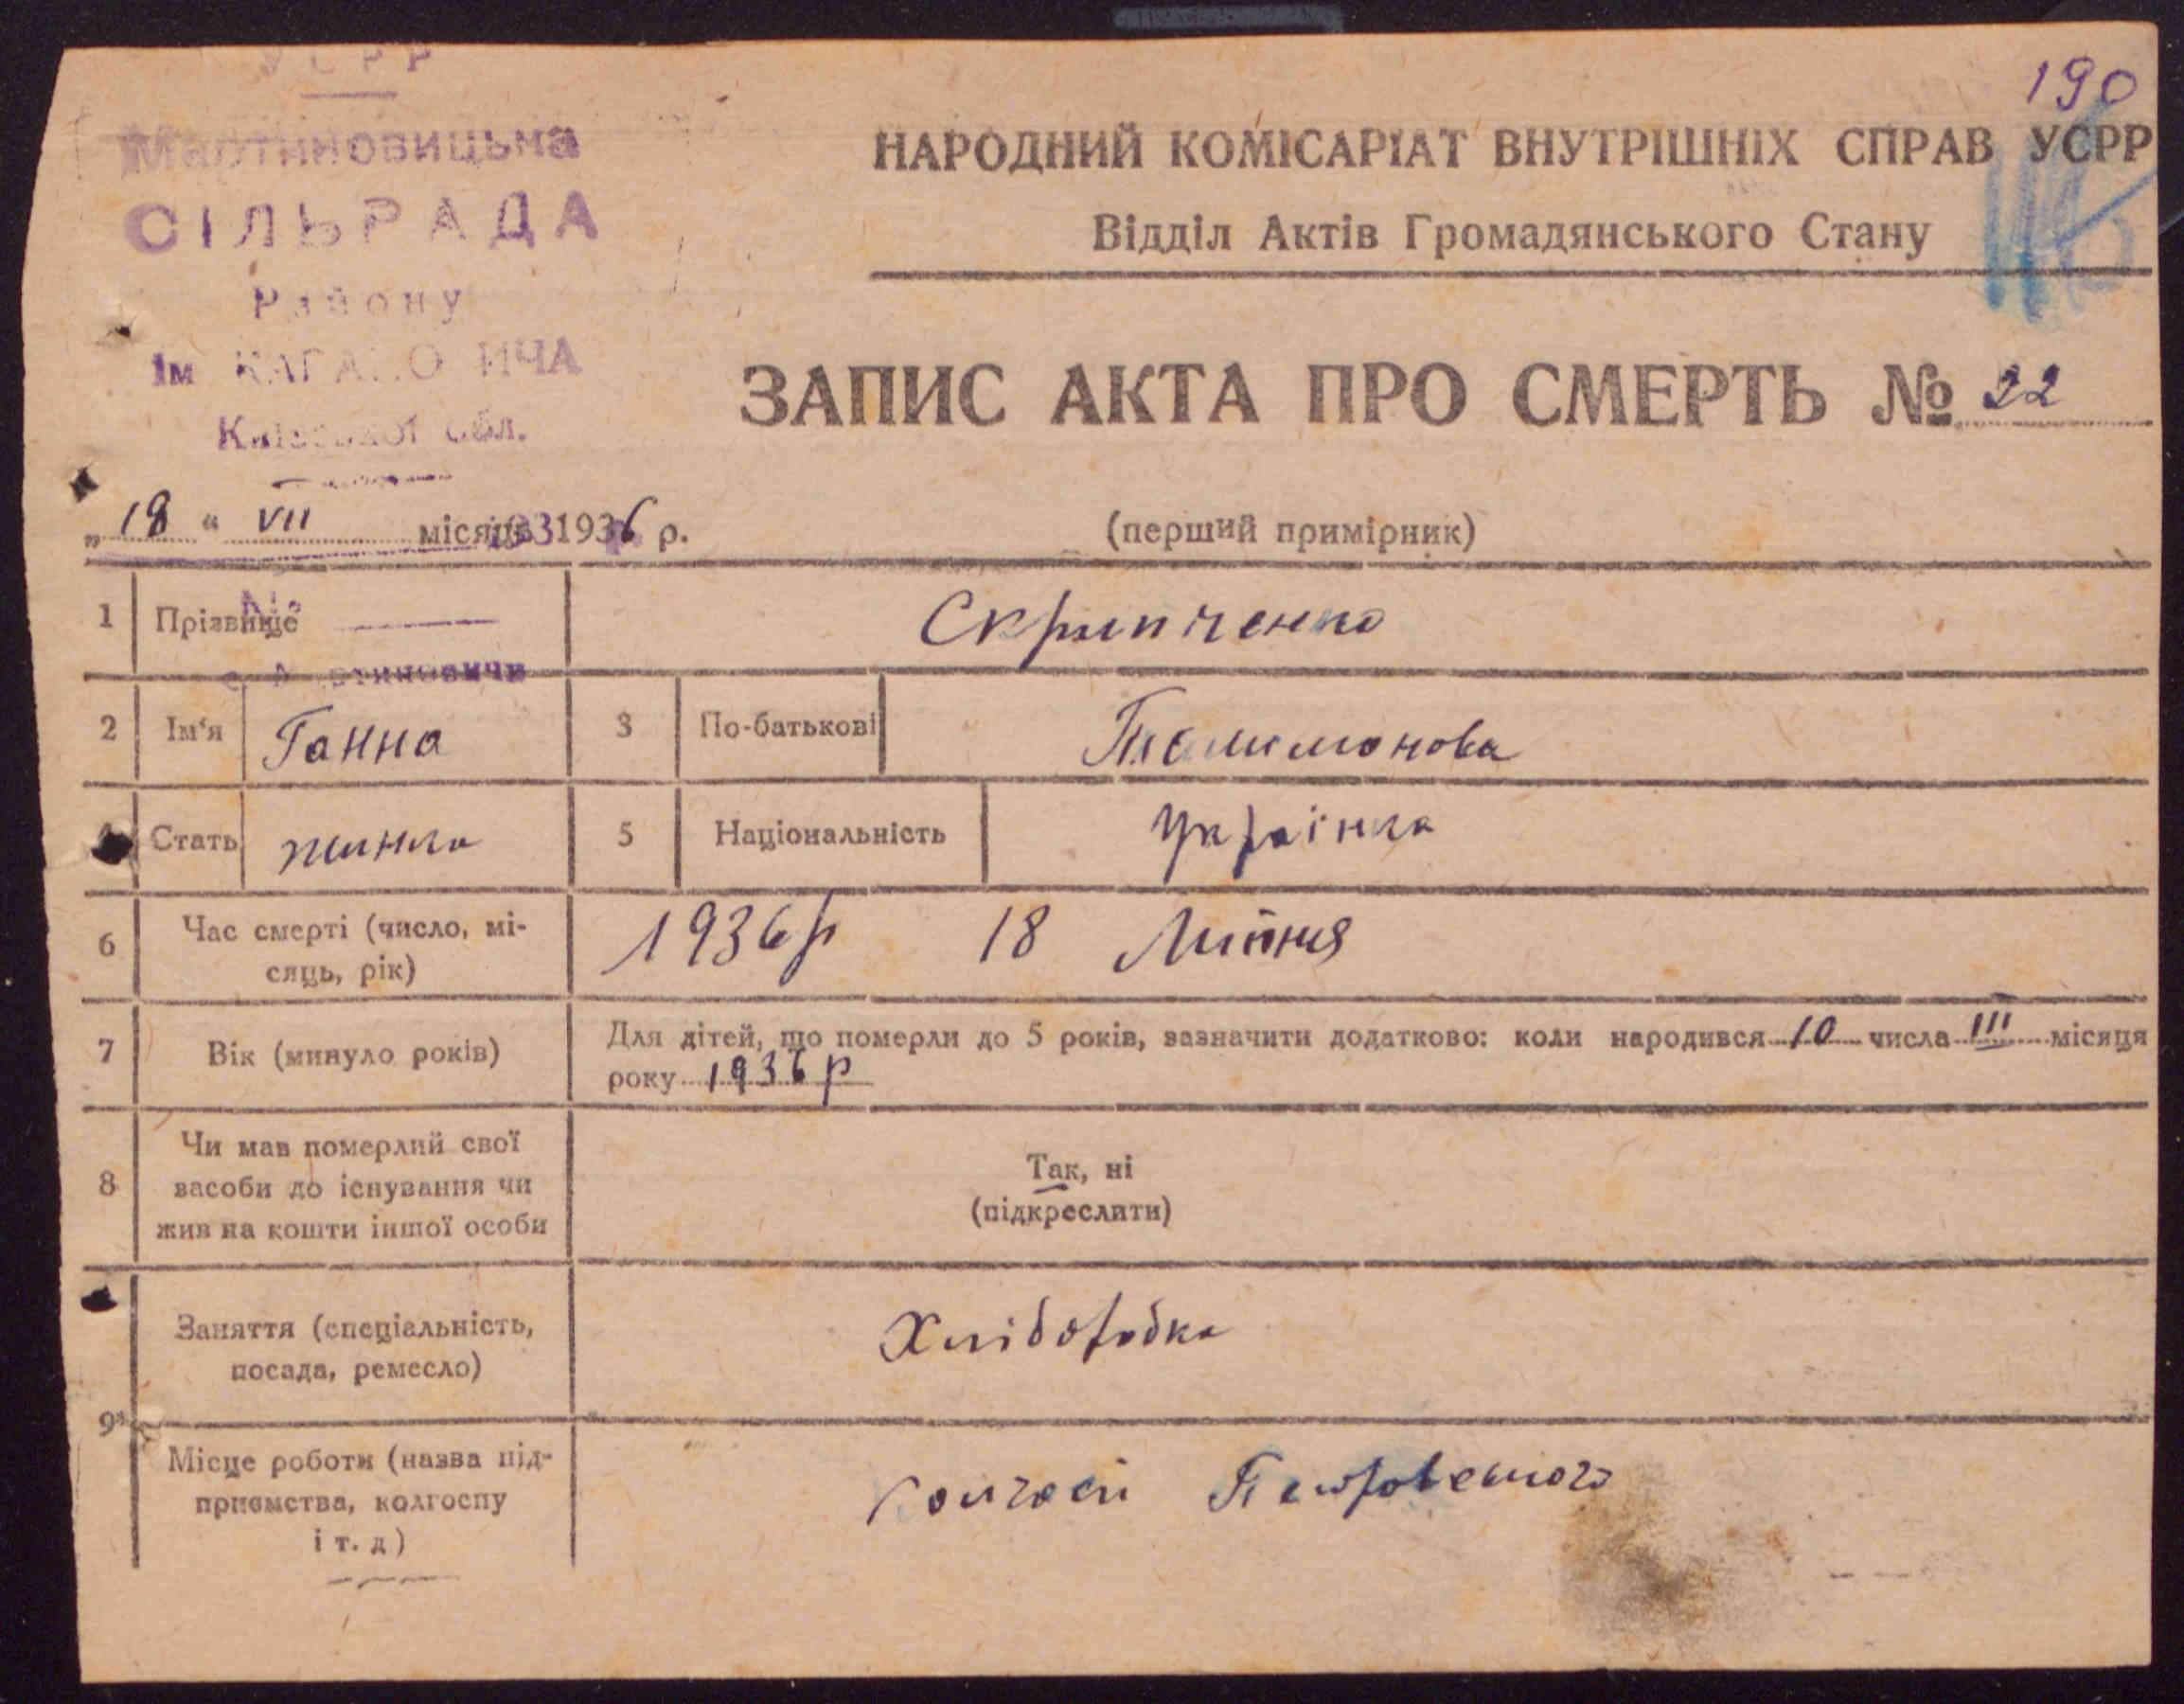 УСРР
190
Мартиновицька
СІЛЬРАДА
Району
Ім КАГАНОВИЧА
Київської обл.
НАРОДНИЙ КОМІСАРІАТ ВНУТРІШНІХ СПРАВ УСРР
Відділ Актів Громадянського Стану
ЗАПИС АКТА ПРО СМЕРТЬ № 22
„18“ VII місяць 1936 р.
(перший примірник)
1 Прізвище Скрипченко
№
с. Мартиновичи
2 Ім‘я Ганна 3 По-батькові
4 Стать жинка 5 Національність Українка
6 Час смерті (число, мі-
сяць, рік) 1936 р 18 Липня
7 Вік (минуло років) Для дітей, що померли до 5 років, зазначити додатково: коли народився 10 числа III місяця
року 1936 р
8 Чи мав померлий свої
засоби до існування чи
жив на кошти іншої особи
Так, ні
(підкреслити)
9* Заняття (спеціальність,
посада, ремесло) Хліборобка
Місце роботи (назва під-
приємства, колгоспу
і т. д) Колгосп Петровського